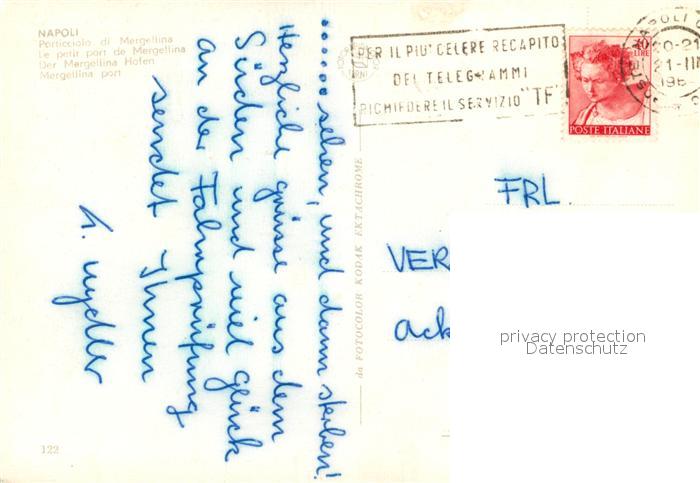 NAPOLI
Porticciolo di Mergellina
Le petit port de Mergellina
Der Mergellina Hofen
Mergellina port
PER IL PIU' CELERE RECAPITO
DEI TELEGRAMMI
RICHIEDERE IL SERVIZIO "TF"
NAPOLI
20-21
21-III
196
40
LIRE
POSTE ITALIANE
...... sehen, und dann sterben!
Herzliche grüsse aus dem
Süden und viel glück
an der Fahrprüfung
sendet Ihnen
h.
da FOTOCOLOR KODAK EKTACHROME
FRL.
VER
Ack
privacy protection
Datenschutz
122